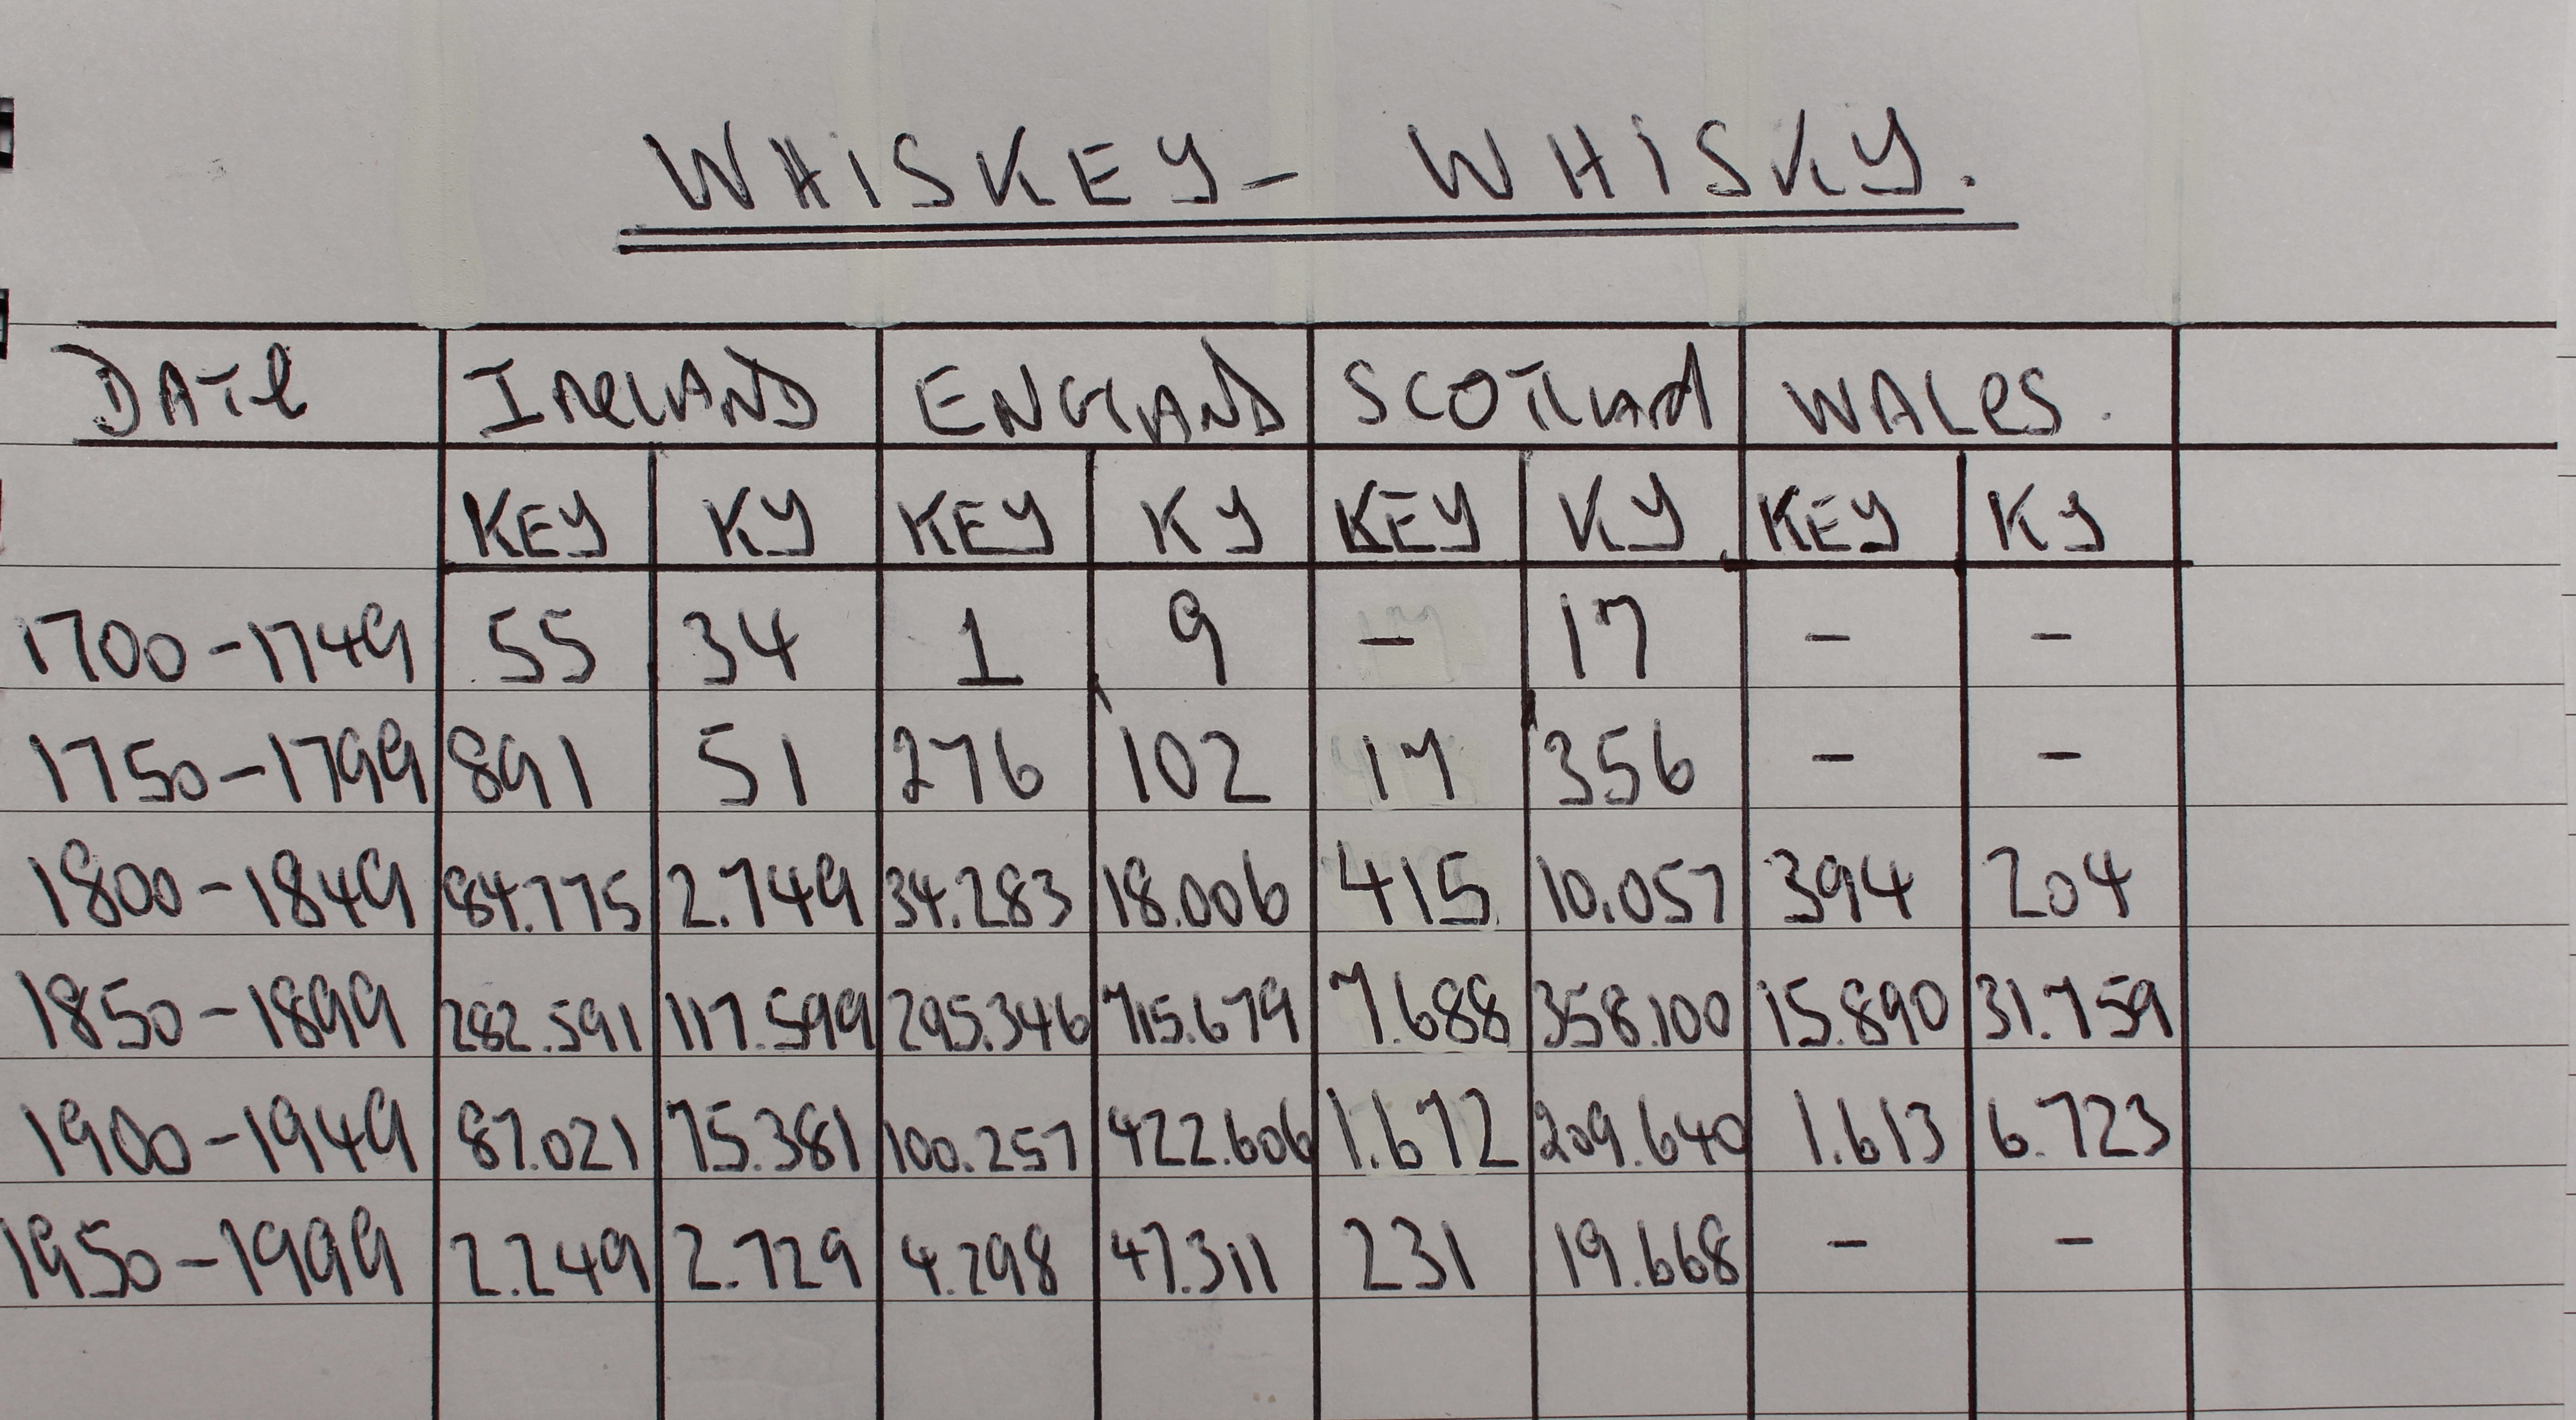 WHiSKEY - WHiSKY.
DATe IReLAND ENGLAND SCOTLAnd WALeS.
KEY KY KEY KY KEY KY KEY KY
1700-1749 55 34 1 9 - 17 - -
1750-1799 891 51 276 102 17 356 - -
1800-1849 84.775 2.749 34.283 18.006 415 10.057 394 204
1850-1899 282.591 117.599 295.346 715.679 7.688 358.100 15.890 31.759
1900-1949 87.021 75.381 100.257 422.606 1.672 209.640 1.613 6.723
1950-1999 2.249 2.729 4.298 47.311 231 19.668 - -